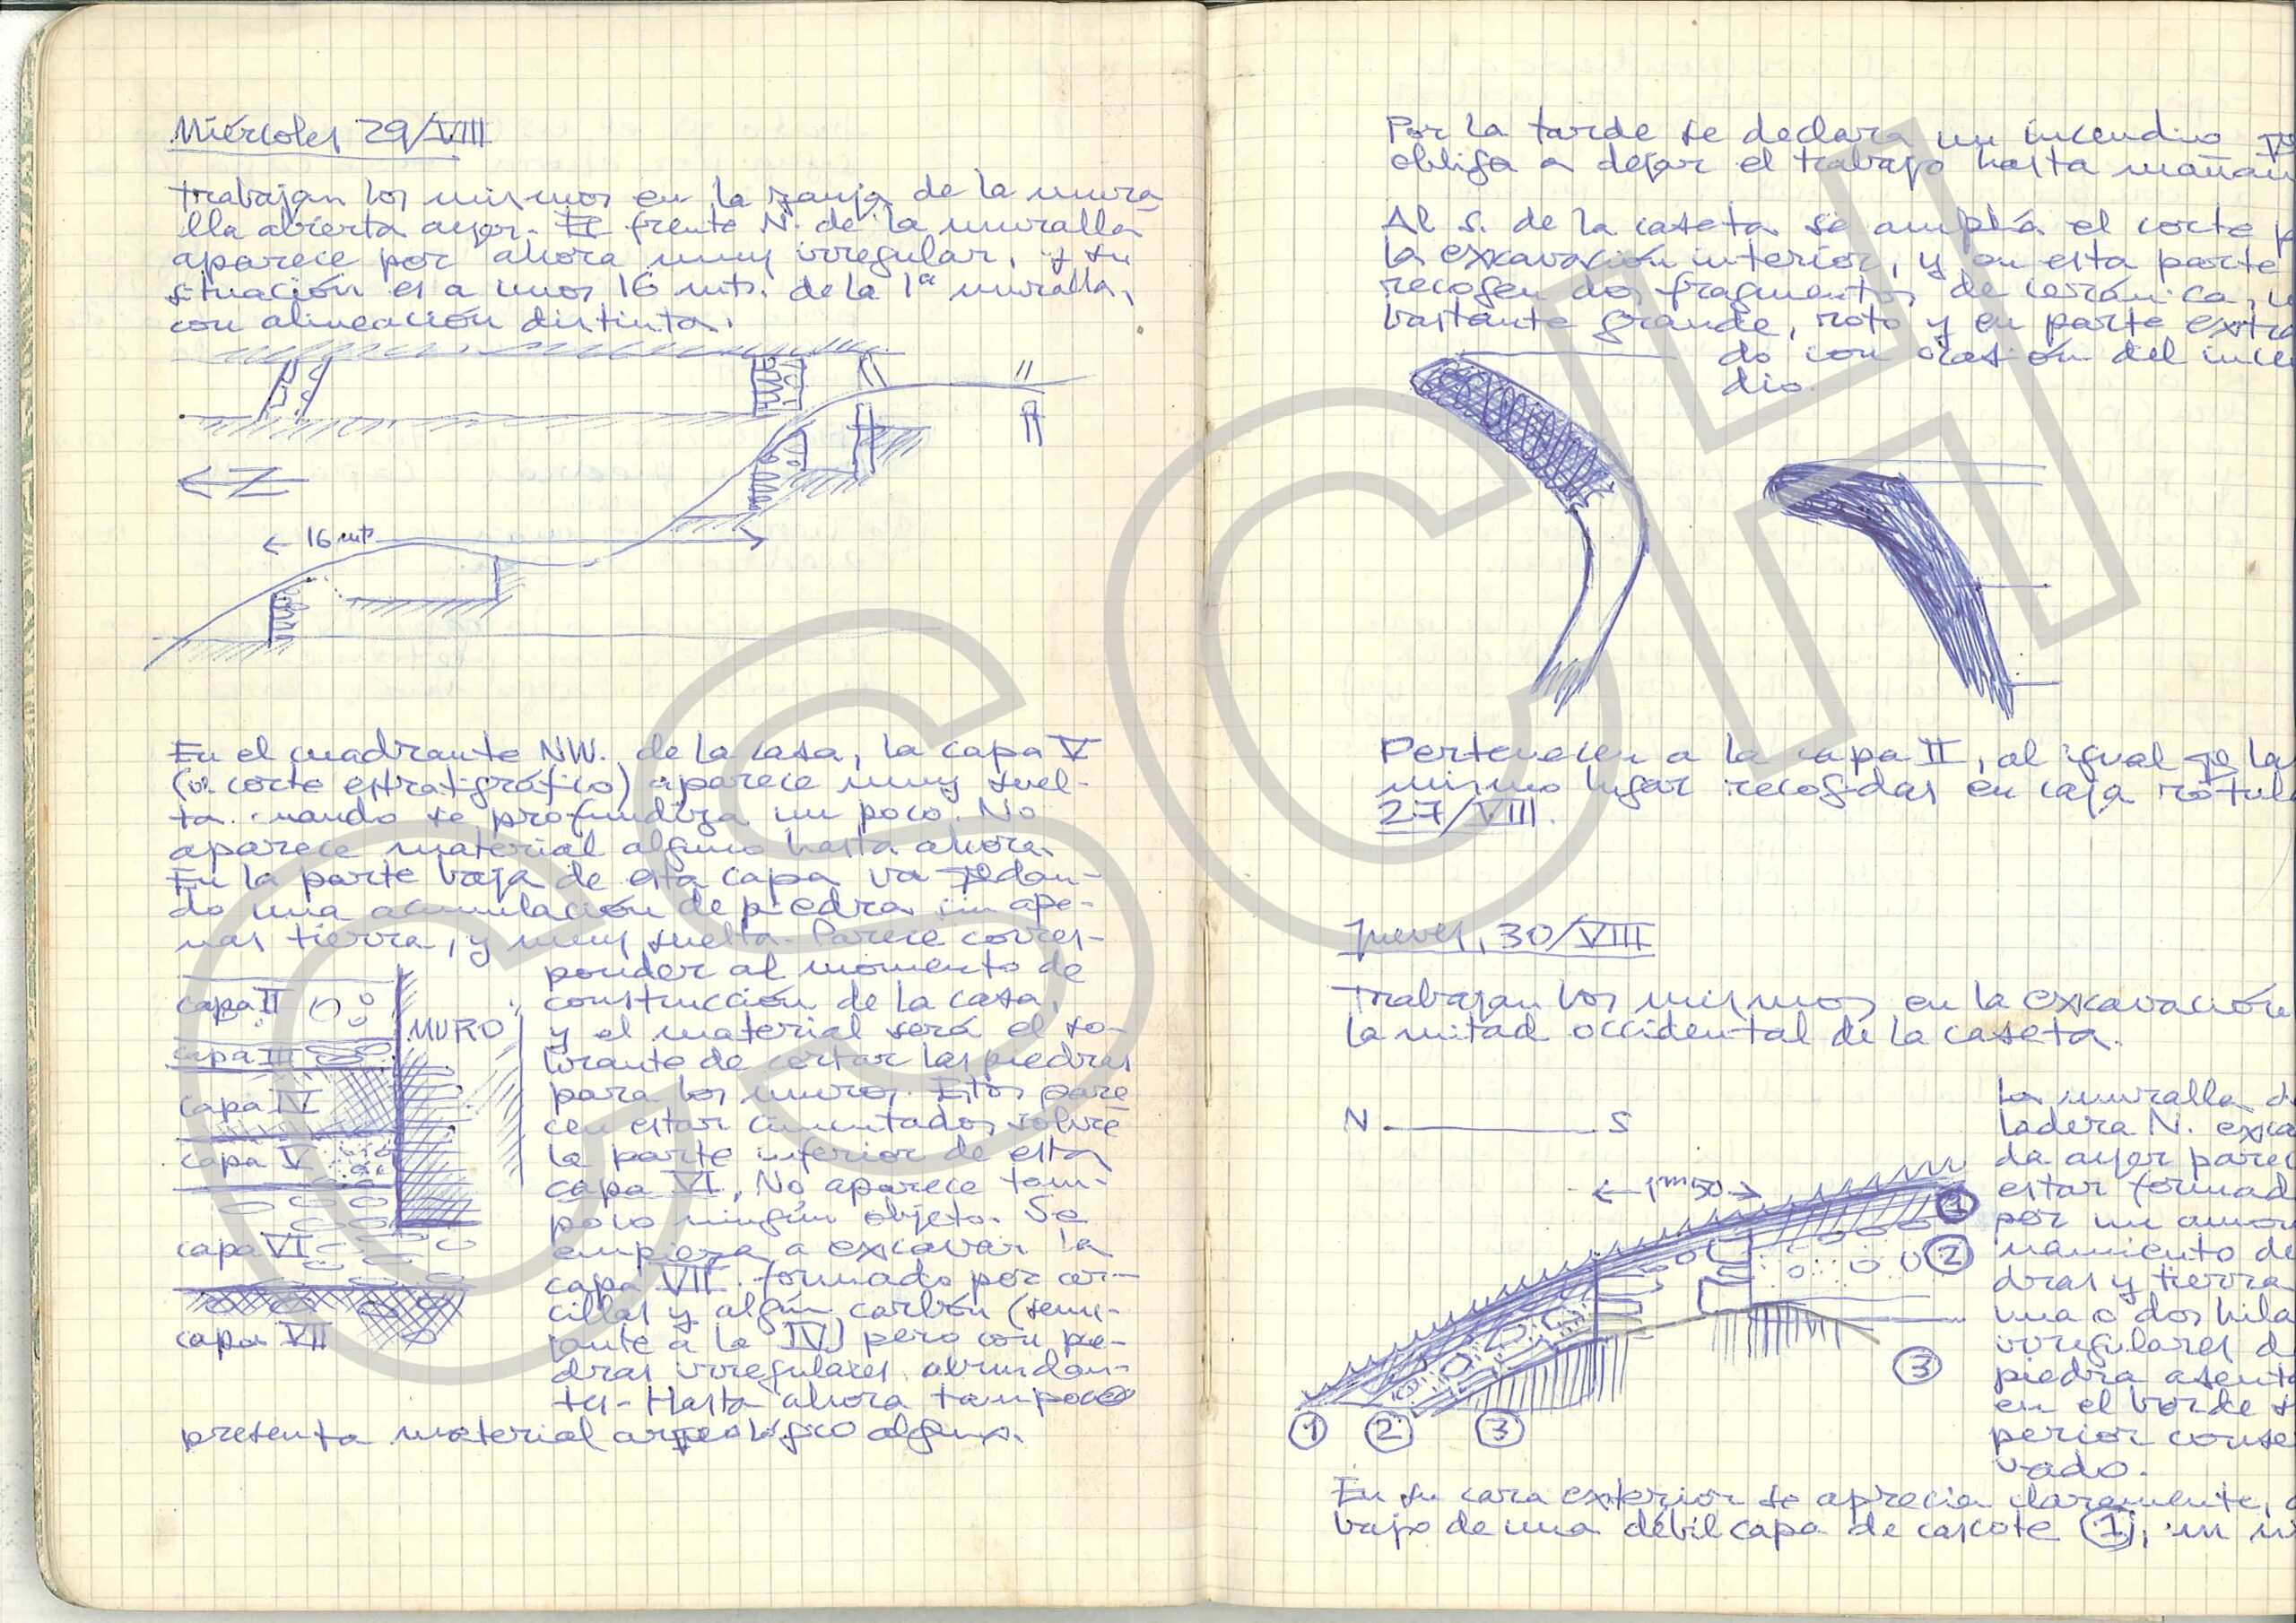 Miércoles 29/VIII
Trabajan los mismos en la zanja de la mura
lla abierta ayer. El frente N. de la muralla
aparece por ahora muy irregular, y su
situación es a unos 16 mts. de la 1ª muralla,
con alineación distinta.
N
16 mts
En el cuadrante NW. de la casa, la capa V
(v. corte estratigráfico) aparece muy suel-
ta cuando se profundiza un poco. No
aparece material alguno hasta ahora.
En la parte baja de esta capa va dan-
do una acumulación de piedra sin ape-
nas tierra, y muy suelta. Parece corres-
ponder al momento de
construcción de la casa,
y el material será el so-
brante de cortar las piedras
para los muros. Estos pare
cen estar cimentados sobre
la parte inferior de esta
capa VI. No aparece tam-
poco ningún objeto. Se
empieza a excavar la
capa VII formado por ar-
cillas y algún carbón (seme-
jante a la IV) pero con pie-
dras irregulares abundan-
tes. Hasta ahora tampoco
presenta material arqueológico alguno.
capa II
MURO
capa III
capa IV
capa V
capa VI
capa VII
Por la tarde se declara un incendio
obliga a dejar el trabajo hasta mañan
Al S. de la caseta se amplía el corte p
la excavación interior, y en esta parte
recogen dos fragmentos de cerámica, u
bastante grande, roto y en parte extra
do con ocasión del incen
dio.
Pertenecen a la capa II, al igual qe la
mismo lugar recogidas en caja rotul
27/VIII.
Jueves, 30/VIII
Trabajan los mismos en la excavación
la mitad occidental de la caseta.
N S
1m50
1
2
3
1 2 3
La muralla d
ladera N. exca
da ayer parec
estar formad
por un amon
namiento de
dras y tierra
una o dos hila
irregulares d
piedra asenta
en el borde s
perior conse
vado.
En su cara exterior se aprecia claramente, d
bajo de una débil capa de cascote (1), un m